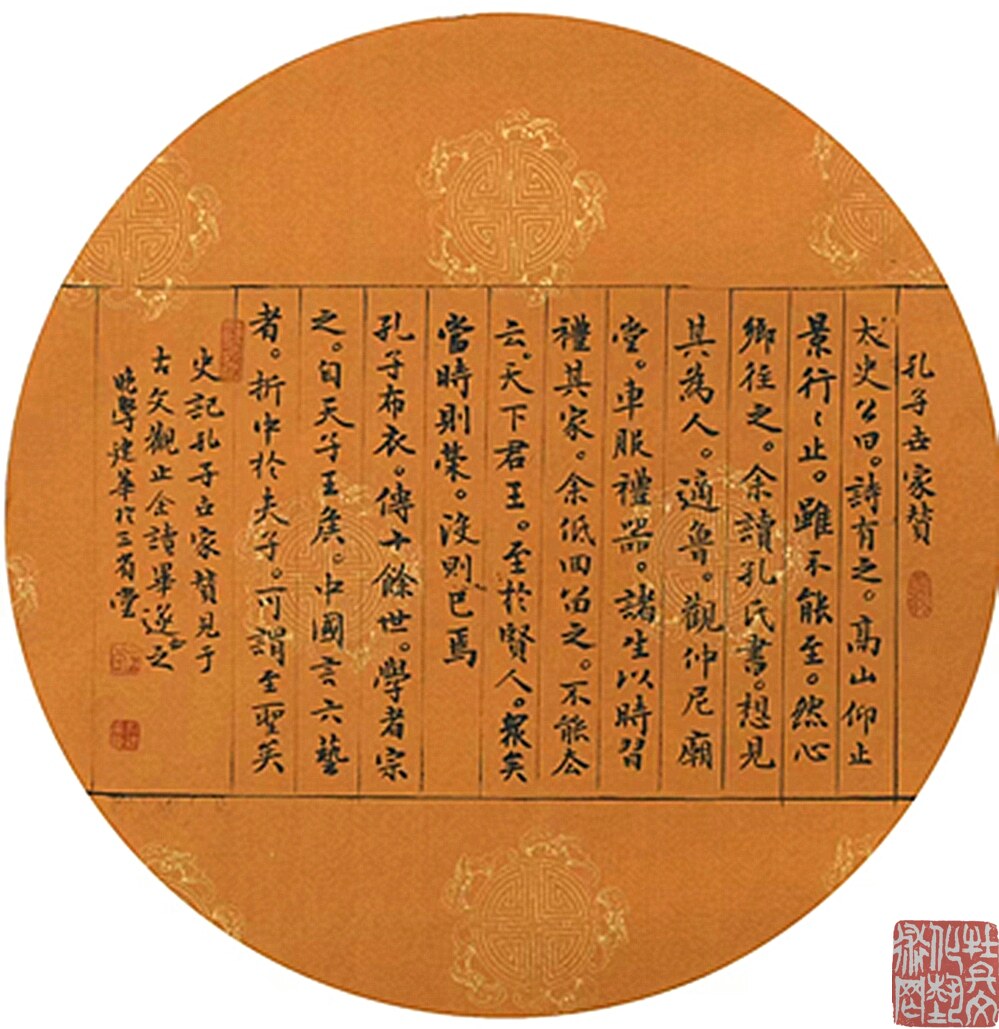 孔子世家贊
太史公曰。詩有之。高山仰止
景行々止。雖不能至。然心
鄉往之。余讀孔氏書。想見
其為人。適魯。觀仲尼廟
堂。車服禮器。諸生以時習
禮其家。余低回留之。不能去
云。天下君王。至於賢人。衆矣
當時則榮。沒則已焉
孔子布衣。傳十餘世。學者宗
之。自天子王侯。中國言六藝
者。折中於夫子。可謂至聖矣
史記孔子世家贊見于
古文觀止余讀畢遂之
晚學建華於三省堂